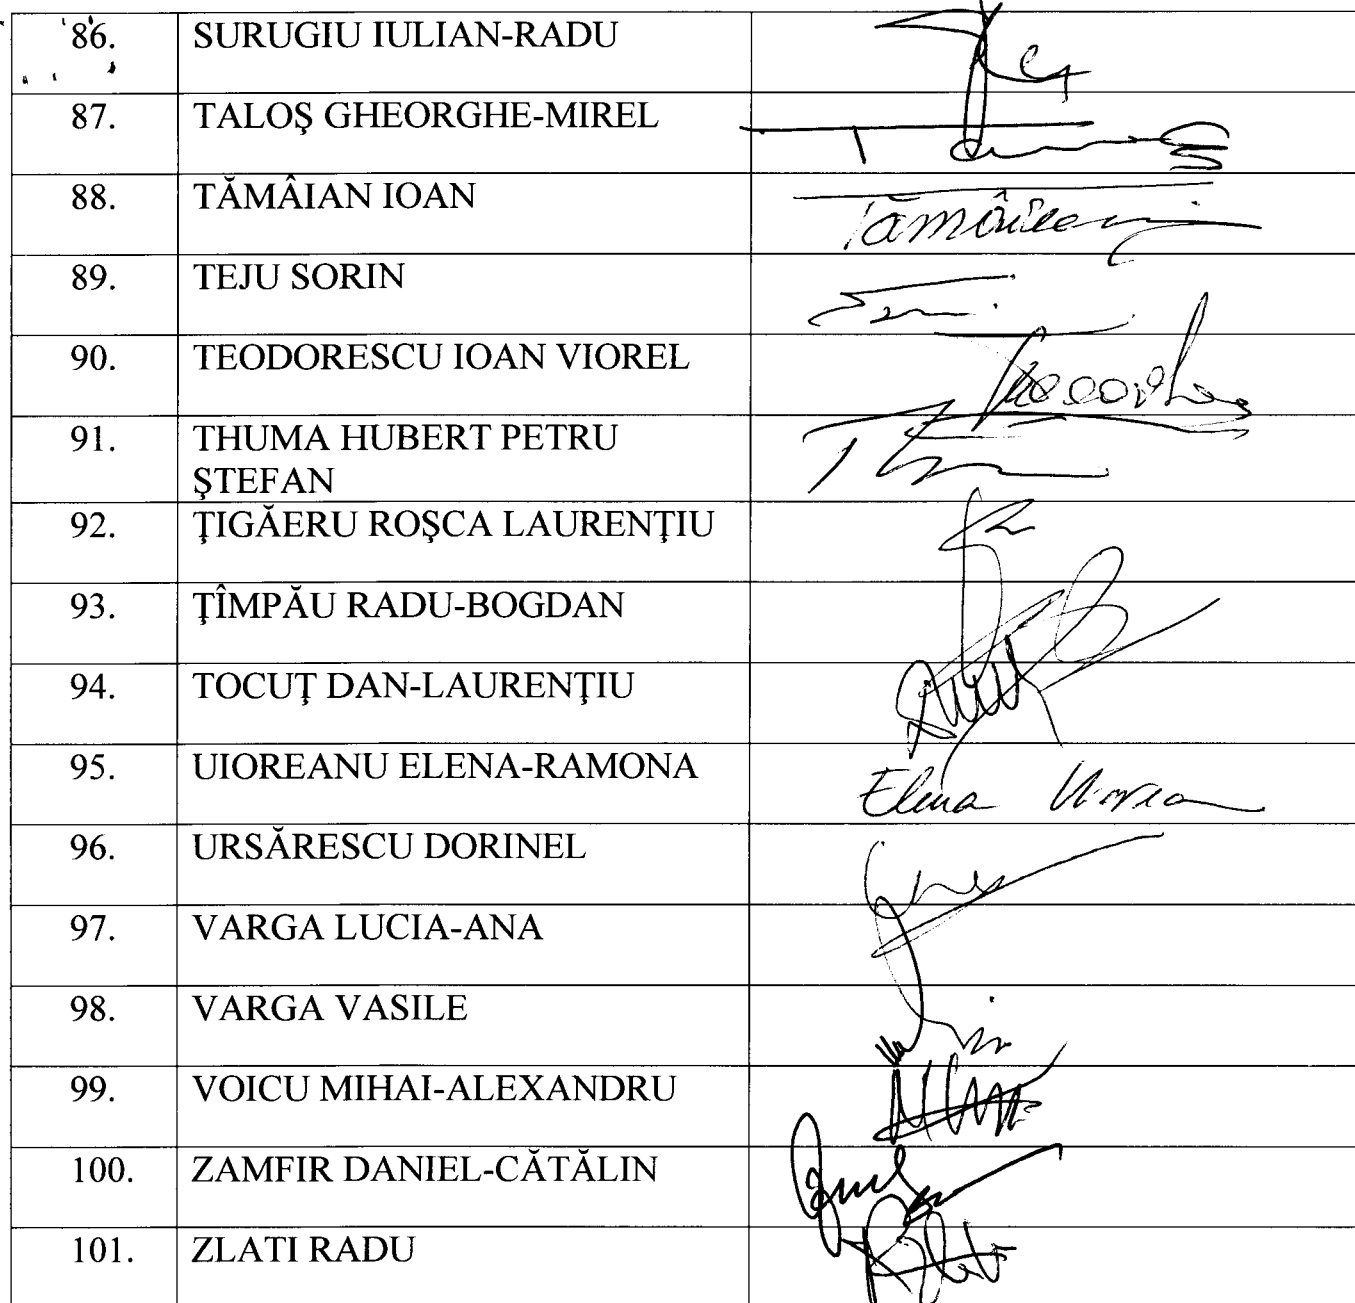 86. SURUGIU IULIAN-RADU
87. TALOŞ GHEORGHE-MIREL
88. TĂMÂIAN IOAN Tămâian
89. TEJU SORIN
90. TEODORESCU IOAN VIOREL
91. THUMA HUBERT PETRU
ŞTEFAN
92. ŢIGĂERU ROŞCA LAURENŢIU
93. ŢÎMPĂU RADU-BOGDAN
94. TOCUŢ DAN-LAURENŢIU
95. UIOREANU ELENA-RAMONA Elena
96. URSĂRESCU DORINEL
97. VARGA LUCIA-ANA
98. VARGA VASILE
99. VOICU MIHAI-ALEXANDRU
100. ZAMFIR DANIEL-CĂTĂLIN
101. ZLATI RADU